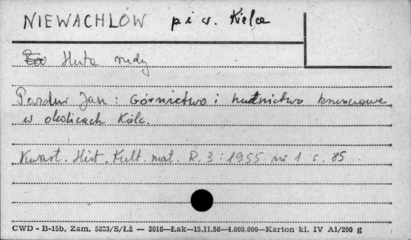 NIEWACHLÓW p i w. Kielce
Huta rudy
Pazdur Jan: Górnictwo i hutnictwo kruszcowe
w okolicach Kielc.
Kwart. Hist. Kult. mat. R. 3: 1955 nr 1 s. 85
CWD - B-15b. Zam. 5323/S/Łż — 3016—Łak—15.11.56—4.000.000—Karton kl. IV A1/200 g